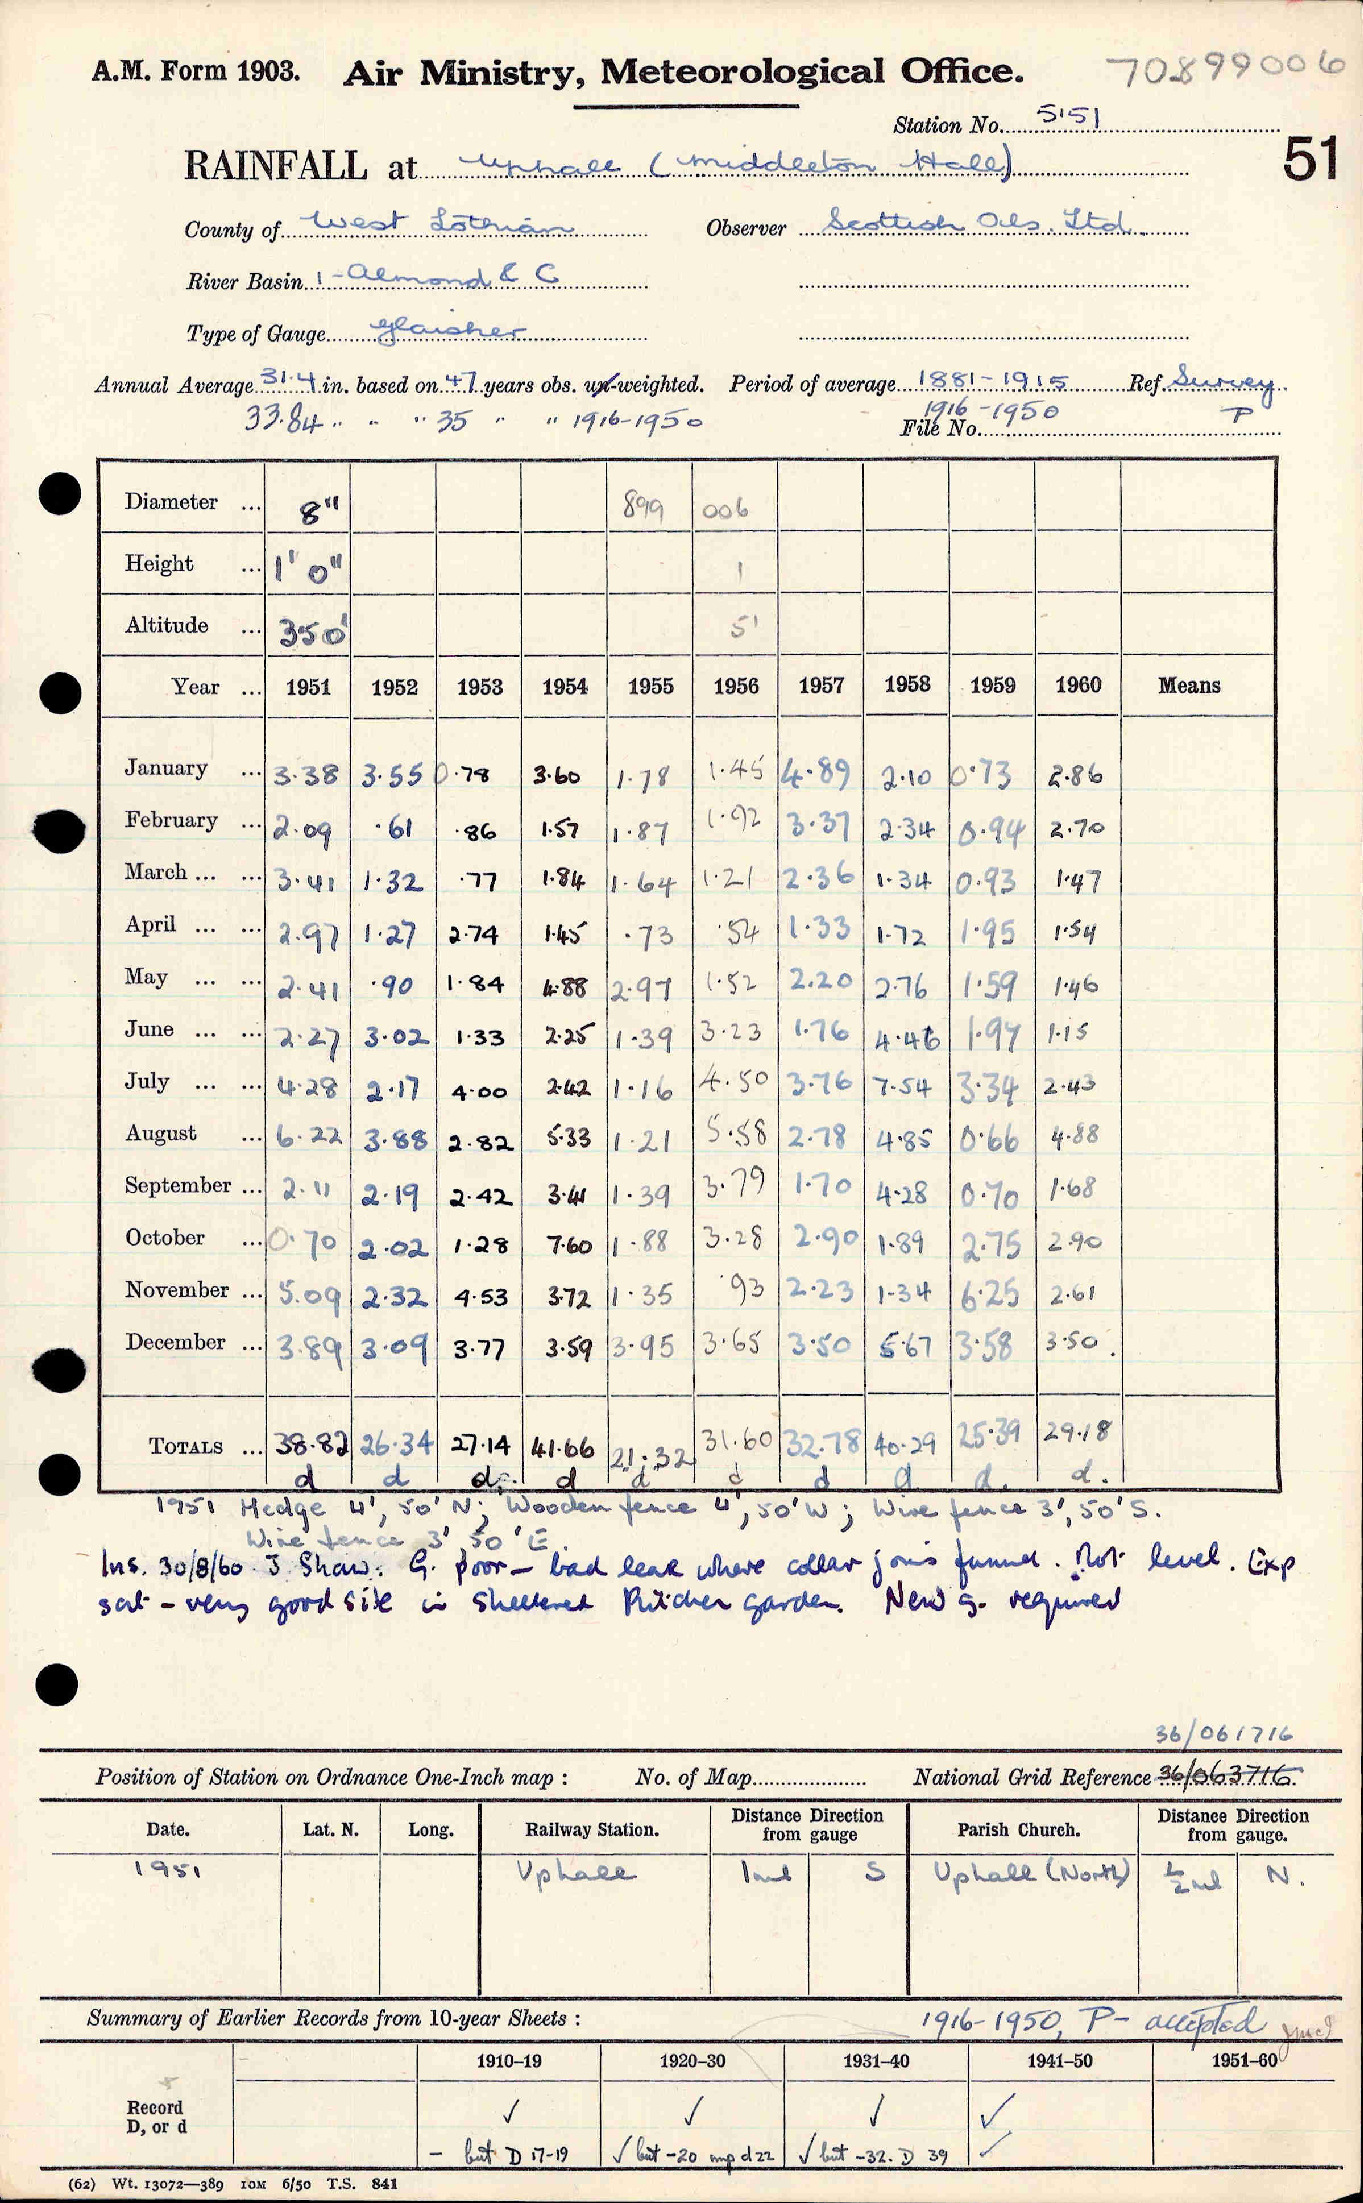 A.M. Form 1903. Air Ministry, Meteorological Office. 70899006
Station No. 5151
51
RAINFALL at Uphall (Middleton Hall)
County of West Lothian Observer Scottish Oils. Ltd.
River Basin 1-Almond & C
Type of Gauge Glaisher
Annual Average 31.4 in. based on 47 years obs. un-weighted. Period of average 1881-1915 Ref Survey
33.84 " " " 35 " " 1916-1950 1916-1950 P
File No.
Diameter ... 8" 899 006
Height ... 1' 0" 1
Altitude ... 350' 51
Year ... 1951 1952 1953 1954 1955 1956 1957 1958 1959 1960 Means
January ... 3.38 3.55 0.78 3.60 1.78 1.45 4.89 2.10 0.73 2.86
February ... 2.09 .61 .86 1.57 1.87 1.92 3.37 2.34 0.94 2.70
March ... ... 3.41 1.32 .77 1.84 1.64 1.21 2.36 1.34 0.93 1.47
April ... ... 2.97 1.27 2.74 1.45 .73 .54 1.33 1.72 1.95 1.54
May ... ... 2.41 .90 1.84 4.88 2.97 1.52 2.20 2.76 1.59 1.46
June ... ... 2.27 3.02 1.33 2.25 1.39 3.23 1.76 4.46 1.97 1.15
July ... ... 4.28 2.17 4.00 2.42 1.16 4.50 3.76 7.54 3.34 2.43
August ... 6.22 3.88 2.82 5.33 1.21 5.58 2.78 4.85 0.66 4.88
September ... 2.11 2.19 2.42 3.41 1.39 3.79 1.70 4.28 0.70 1.68
October ... 0.70 2.02 1.28 7.60 1.88 3.28 2.90 1.89 2.75 2.90
November ... 5.09 2.32 4.53 3.72 1.35 .93 2.23 1.34 6.25 2.61
December ... 3.89 3.09 3.77 3.59 3.95 3.65 3.50 5.67 3.58 3.50
TOTALS ... 38.82 26.34 27.14 41.66 21.32 31.60 32.78 40.29 25.39 29.18
d d d. d d d d d d. d.
1951 Hedge 4', 50' N; Wooden fence 4', 50' W; Wire fence 3', 50' S.
Wire fence 3', 50' E.
Ins. 30/8/60 J Shaw. G. poor - bad leak where collar joins funnel. Not level. Exp
sat - very good site in sheltered Kitchen garden. New g. required
36/061716
Position of Station on Ordnance One-Inch map : No. of Map National Grid Reference 36/063716.
Date. Lat. N. Long. Railway Station. Distance Direction from gauge Parish Church. Distance Direction from gauge.
1951 Uphall 1ml S Uphall (North) 1/2 ml N.
Summary of Earlier Records from 10-year Sheets : 1916-1950, P - accepted
1910-19 1920-30 1931-40 1941-50 1951-60
Record ✓ ✓ ✓ ✓
D, or d - but D 17-19 ✓ but -20 imp d 22 ✓ but -32. D 39 ✓
(62) Wt. 13072—389 10M 6/50 T.S. 841